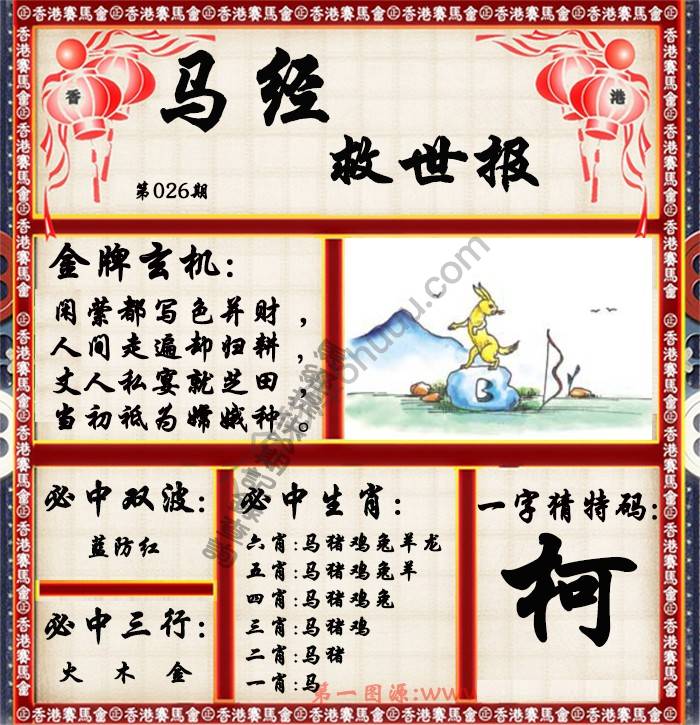 香港賽馬會
香 港
马经
救世报
第026期
金牌玄机:
闲萦都写色并财，
人间走遍却归耕，
丈人私宴就芝田，
当初祗为嫦娥种。
B
必中双波:
蓝防红
必中三行:
火 木 金
必中生肖:
六肖:马猪鸡兔羊龙
五肖:马猪鸡兔羊
四肖:马猪鸡兔
三肖:马猪鸡
二肖:马猪
一肖:马
一字猜特码:
柯
第一图源:www.